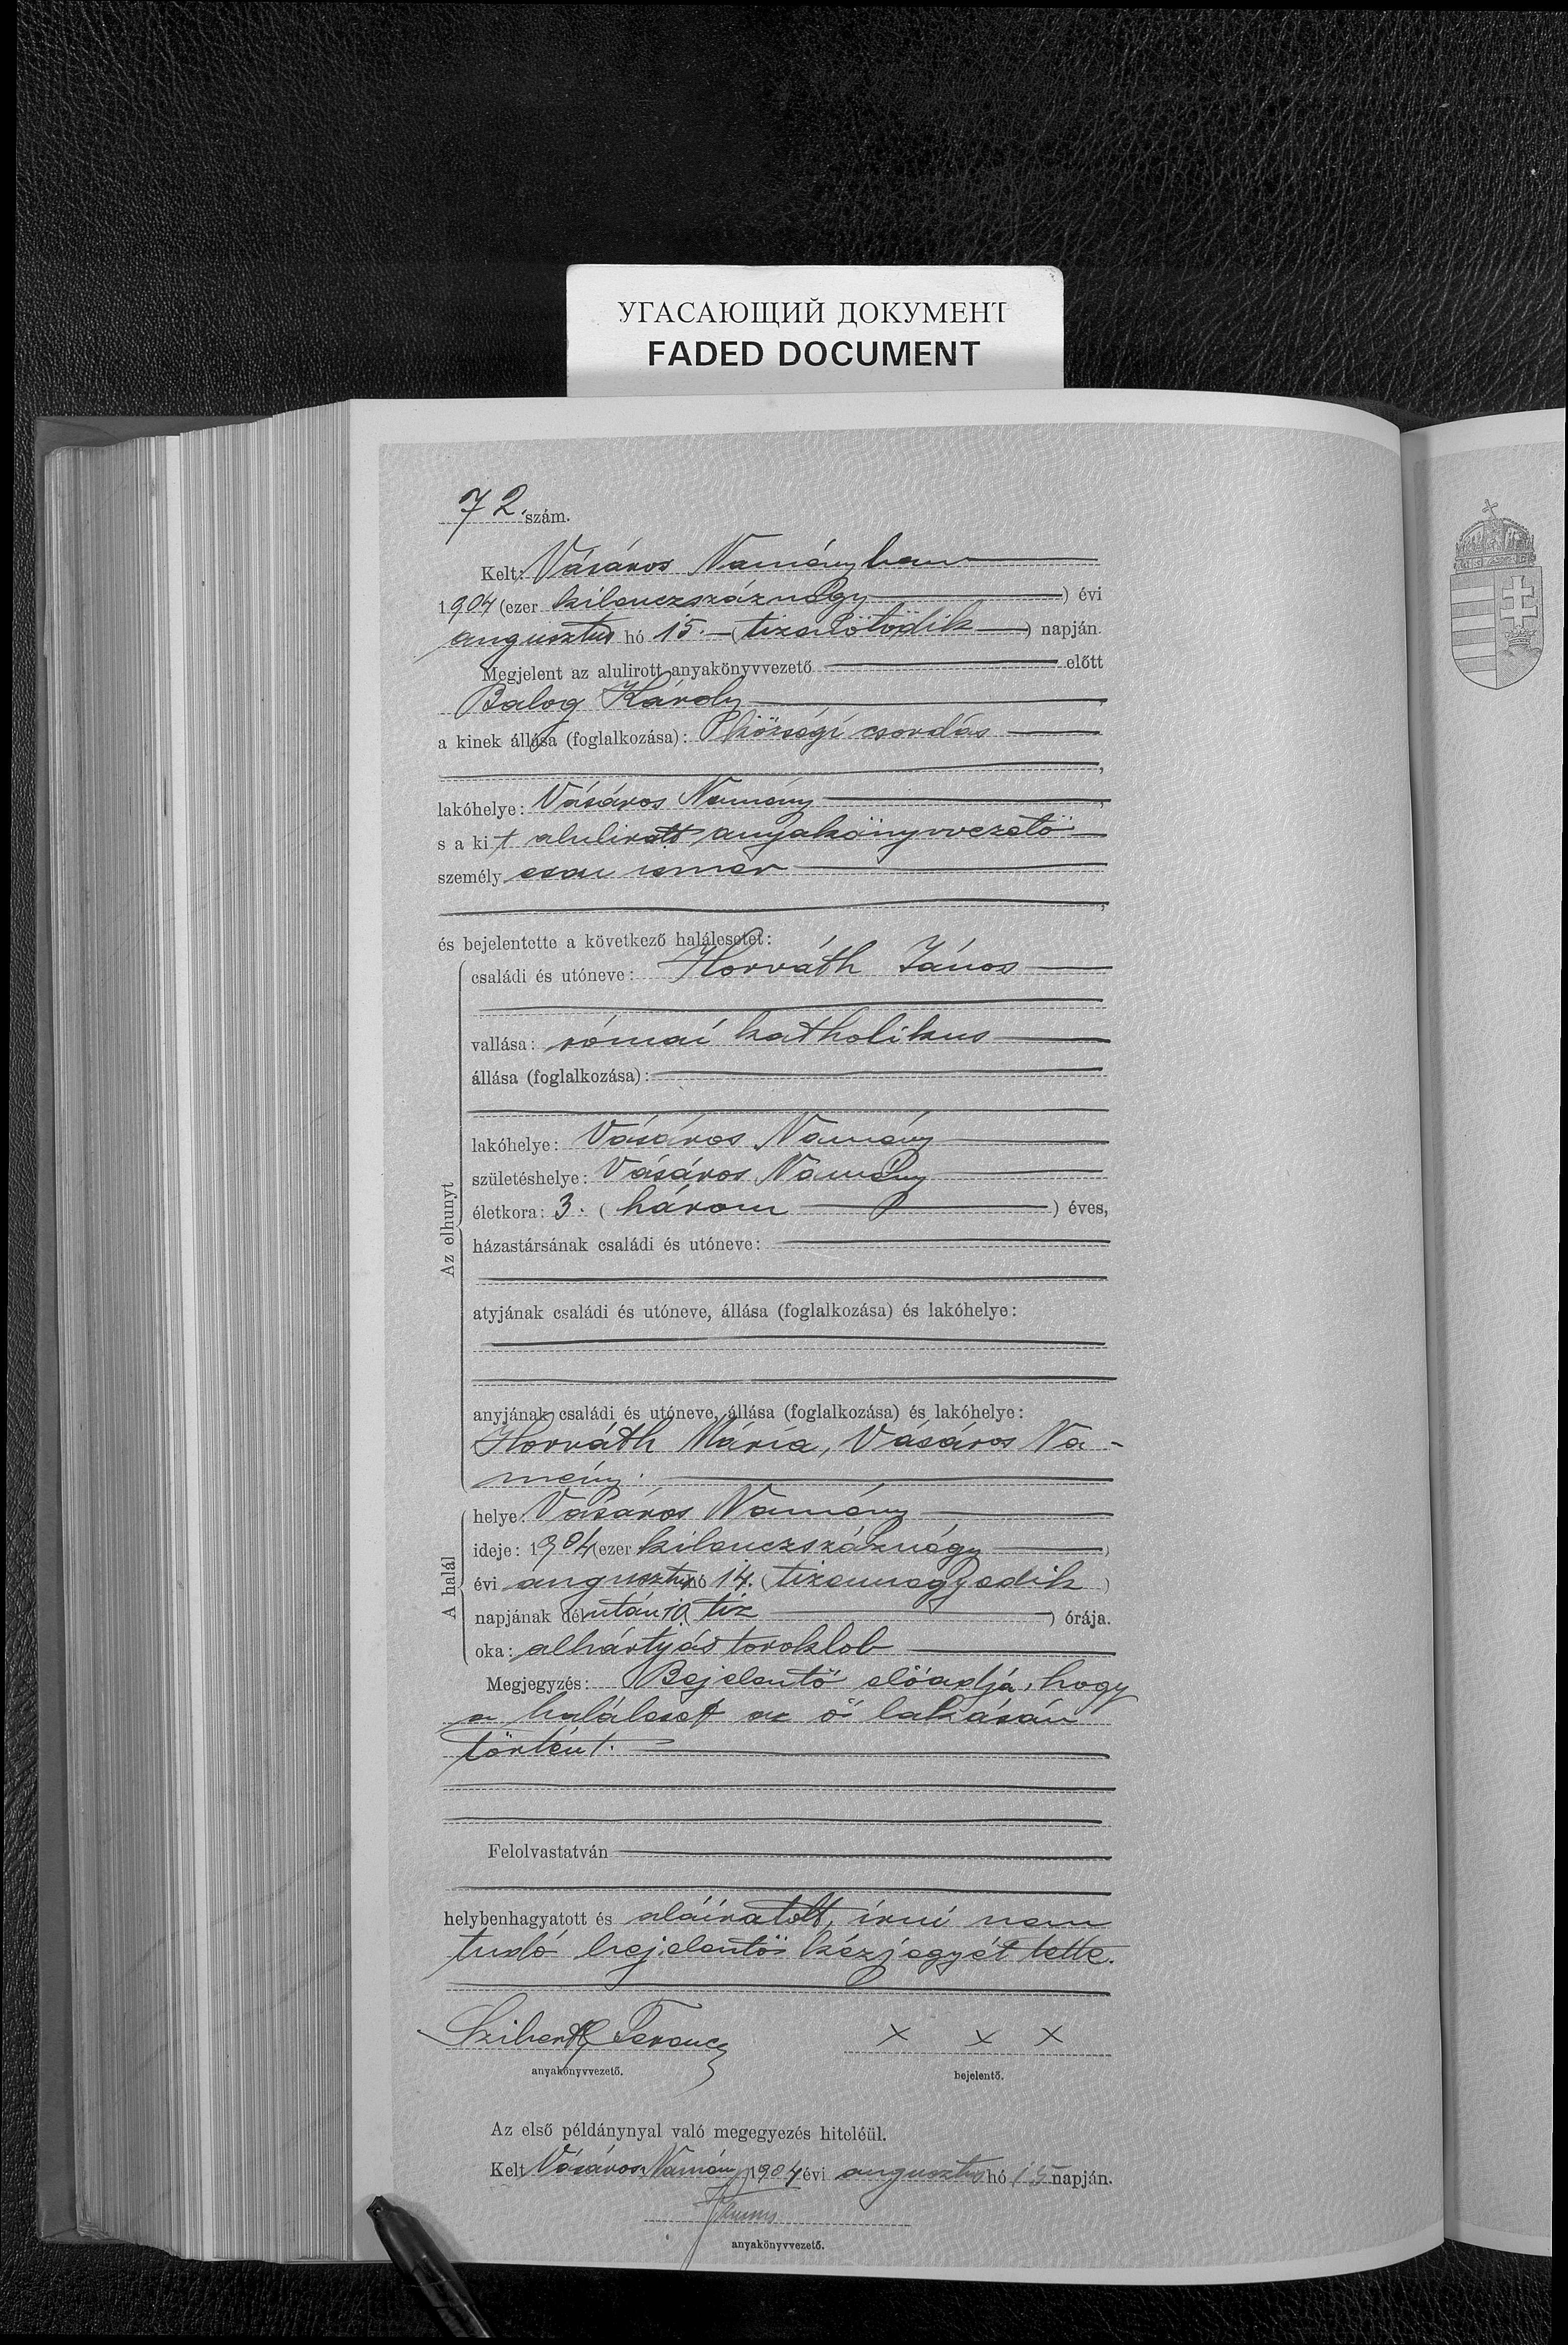 УГАСАЮЩИЙ ДОКУМЕНТ
FADED DOCUMENT
72. szám.
Kelt: Vásáros Naményban
1904 (ezer kilenczszáznégy) évi
augusztus hó 15. (tizenötödik) napján.
Megjelent az alulirott anyakönyvvezető előtt
Balog Károly,
a kinek állása (foglalkozása): községi csordás
lakóhelye: Vásáros Namény,
s a kit alulirott anyakönyvvezető
személyesen ismer,
és bejelentette a következő halálesetet:
Az elhunyt
családi és utóneve: Horváth János
vallása: római katholikus
állása (foglalkozása):
lakóhelye: Vásáros Namény
születéshelye: Vásáros Namény
életkora: 3. (három) éves,
házastársának családi és utóneve:
atyjának családi és utóneve, állása (foglalkozása) és lakóhelye:
anyjának családi és utóneve, állása (foglalkozása) és lakóhelye:
Horváth Mária, Vásáros Na-
mény.
A halál
helye: Vásáros Namény
ideje: 1904 (ezer kilenczszáznégy)
évi augusztus hó 14. (tizennegyedik)
napjának délután 10 (tiz) órája.
oka: álhártyás toroklob
Megjegyzés: Bejelentő előadja, hogy
a haláleset az ő lakásán
történt.
Felolvastatván
helybenhagyatott és aláiratott, irni nem
tudó bejelentő kézjegyét tette.
Ferencz
x x x
anyakönyvvezető.
bejelentő.
Az első példánynyal való megegyezés hiteléül.
Kelt Vásáros Namény 1904 évi augusztus hó 15 napján.
anyakönyvvezető.